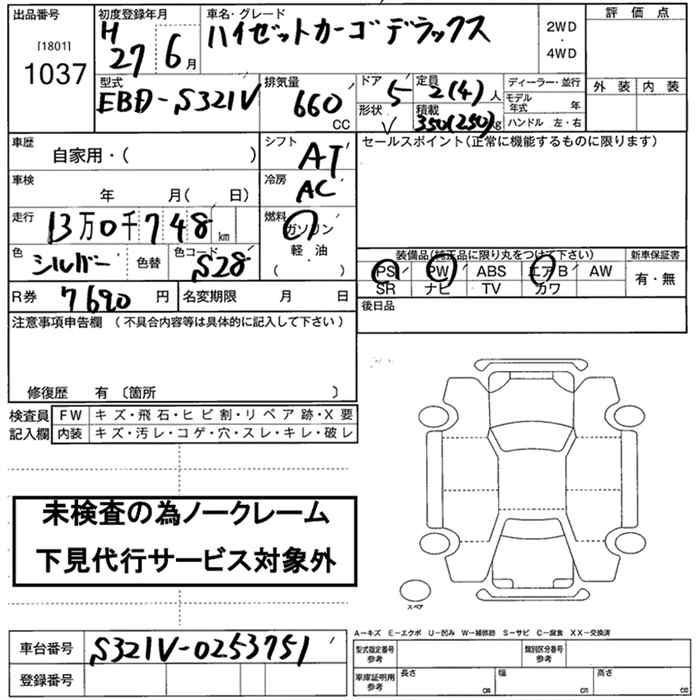 出品番号 初度登録年月 車名・グレード 評価点
[1801] H27年6月 ハイゼットカーゴ デラックス 2WD・4WD
1037
型式 排気量 ドア 定員 ディーラー・並行 外装 内装
EBD-S321V 660CC 5 2(4)人 モデル年式 年
形状 V 積載 350(250)kg ハンドル 左・右
車歴 シフト セールスポイント(正常に機能するものに限ります)
自家用・( ) AT
車検 冷房
年 月( 日) AC
走行 燃料
13万0千748km ガソリン
色 シルバー 色替 色コード S28 軽・油
( )
装備品(純正品に限り丸をつけて下さい) 新車保証書
PS PW ABS エアB AW 有・無
SR ナビ TV カワ
R券 7690円 名変期限 月 日 後日品
注意事項申告欄(不具合内容等は具体的に記入して下さい)
修復歴 有〔箇所 〕
検査員 FW キズ・飛石・ヒビ割・リペア跡・X要
記入欄 内装 キズ・汚レ・コゲ・穴・スレ・キレ・破レ
未検査の為ノークレーム
下見代行サービス対象外
スペア
A-キズ E-エクボ U-凹み W-補修跡 S-サビ C-腐食 XX-交換済
車台番号 S321V-0253751 型式指定番号 参考 類別区分番号 参考
登録番号 車庫証明用 参考 長さ cm 幅 cm 高さ cm